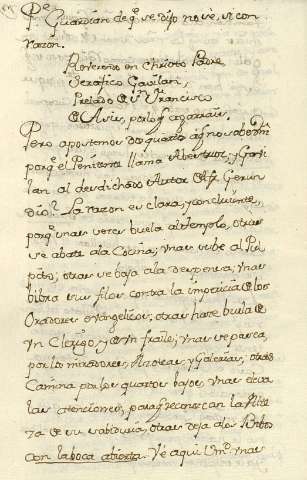 Pe. Guardian de qn. se dijo no ve, si con
razon.
Reverendo en Christo Padre
Serafico Gavilan,
Prelado de Sn. Francisco
de Asis, por lo qe. agarrais.
Pero apostemos dos quartos a qe. no sabe Vm.
porqe. el Penitente llama Abestruz, y Gavi-
lan al desdichado Autor de Fr. Gerun
dio? La razon es clara, y concluiente,
porqe. unas veces buela al templo, otras
se abate ala Cocina; unas sube al Pul
pito; otras se baja ala despensa; unas
bibra sus filos contra la impericia de los
Oradores evangelicos, otras hace burla de
un Clerigo, y de un fraile; unas se pasea
por los miradores, Azoteas, y Galerias, otras
Camina por los quartos bajos; unas eleva
las atenciones, para qe. reconozcan la Alte
za de su sabiduria, otras deja alos Bobos
con la boca abierta. Ve aqui Vm. unas